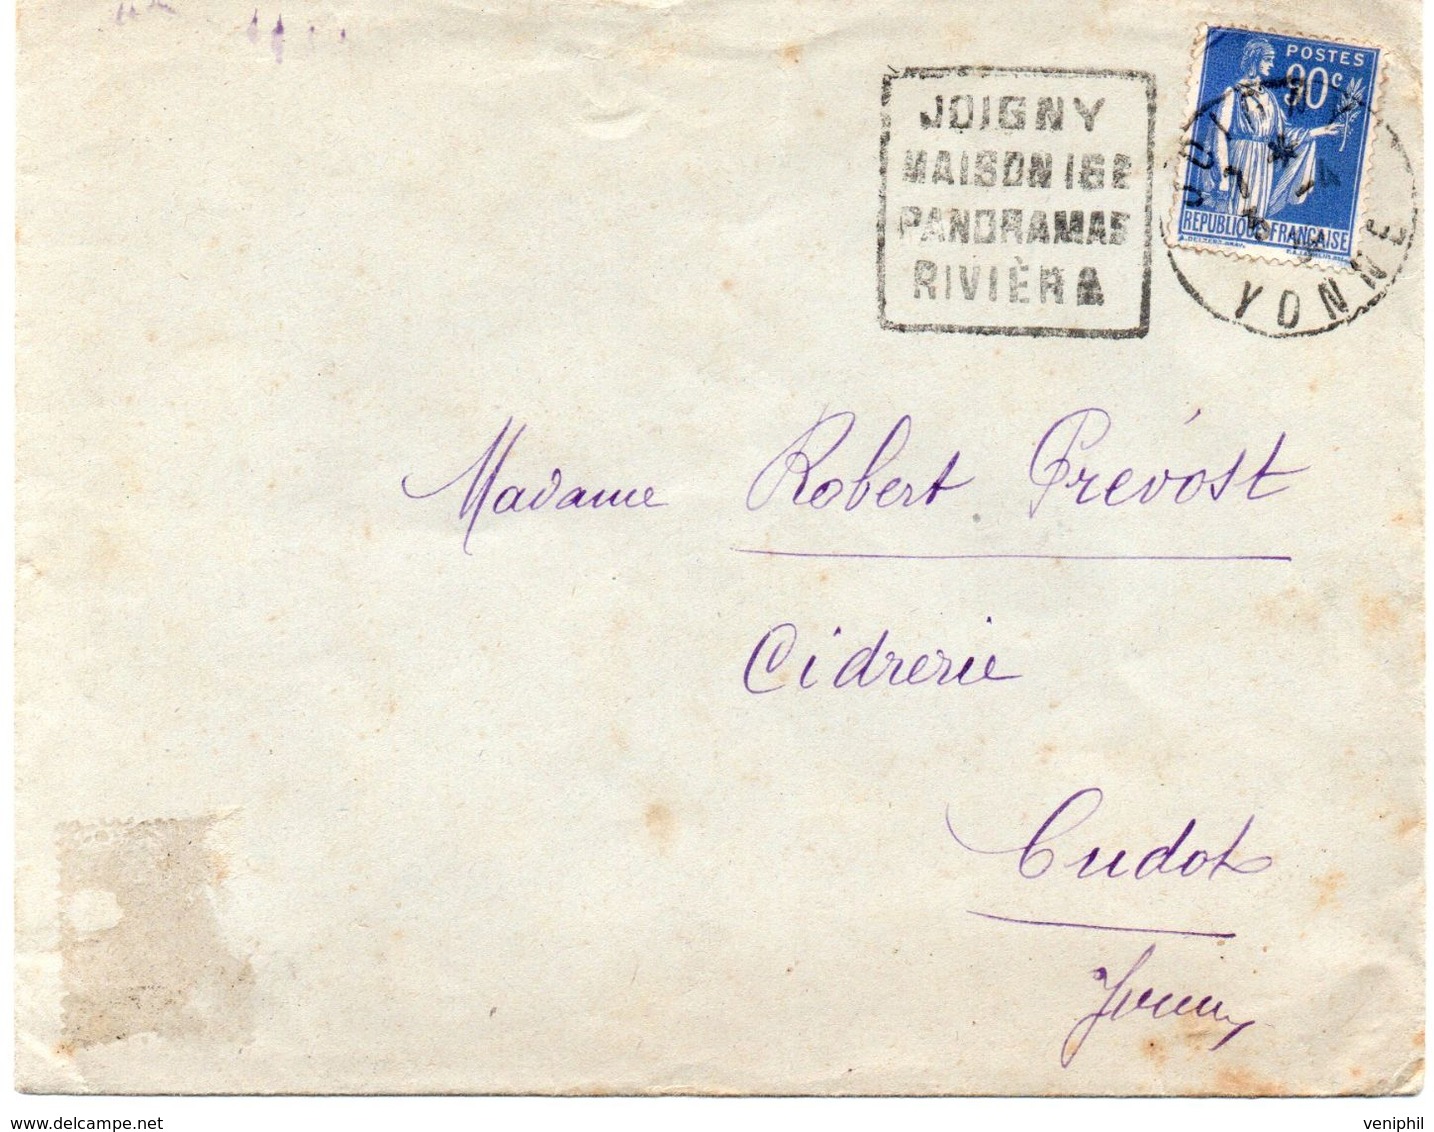 JOIGNY
MAISON
PANORAMAS
RIVIÈRA
POSTES
90c
REPUBLIQUE FRANÇAISE
JOIGNY
YONNE
Madame Robert Prévost
Cidrerie
Cudot
Yonne
www.delcampe.net
veniphil